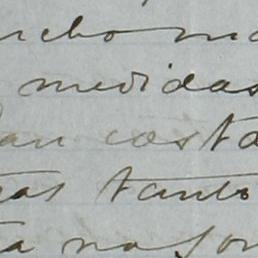 ncho ma
medidas
an costa
as tanto
ta na for